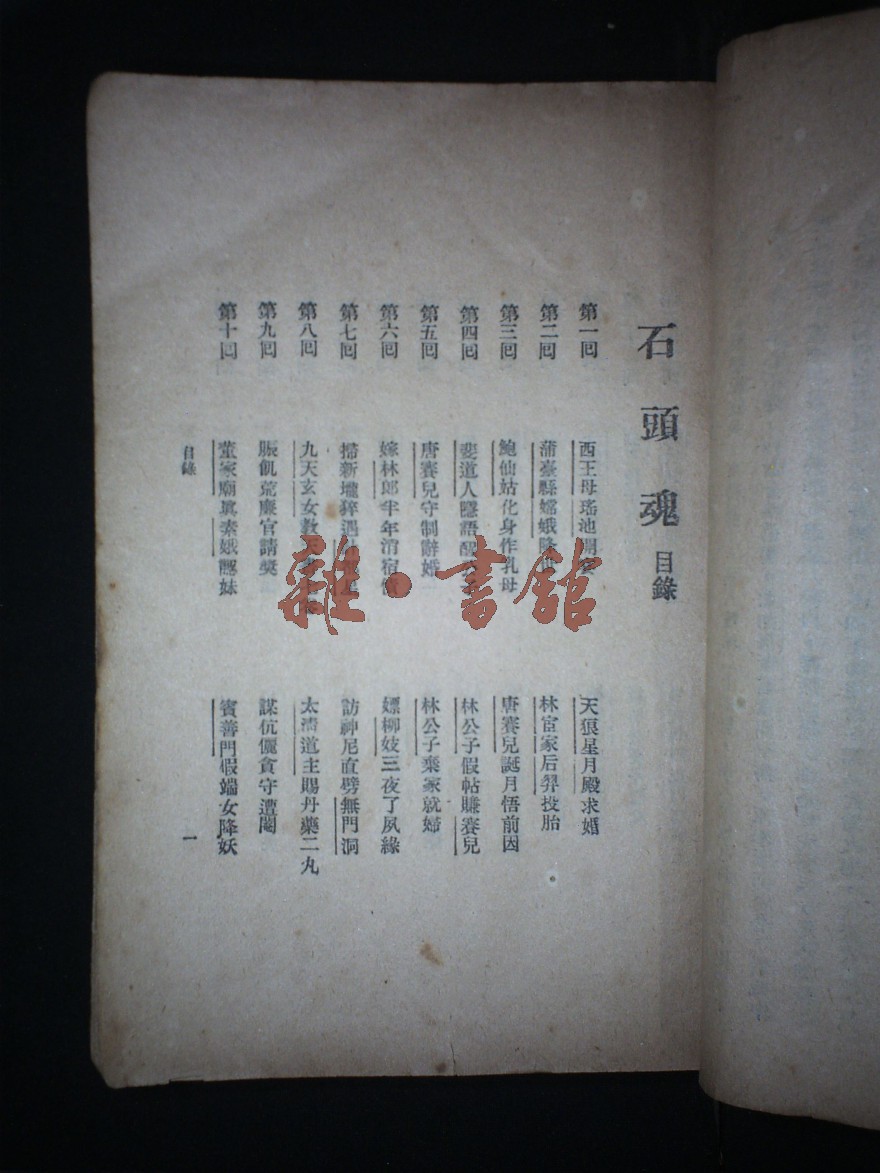 石頭魂 目錄
第一回 西王母瑤池開宴 天狼星月殿求婚
第二回 蒲臺縣嫦娥降世 林宦家后羿投胎
第三回 鮑仙姑化身作乳母 唐賽兒誕月悟前因
第四回 裴道人隱語醒 林公子假帖賺賽兒
第五回 唐賽兒守制辭婚 林公子棄家就婦
第六回 嫁林郎半年消宿債 嫖柳妓三夜了夙緣
第七回 掃新壠猝遇星 訪神尼直劈無門洞
第八回 九天玄女教天 太清道主賜丹藥二丸
第九回 賑飢荒廉官請獎 謀伉儷貪守遭閹
第十回 董家廟眞素娥認妹 賓善門假端女降妖
目錄 一
雜·書館